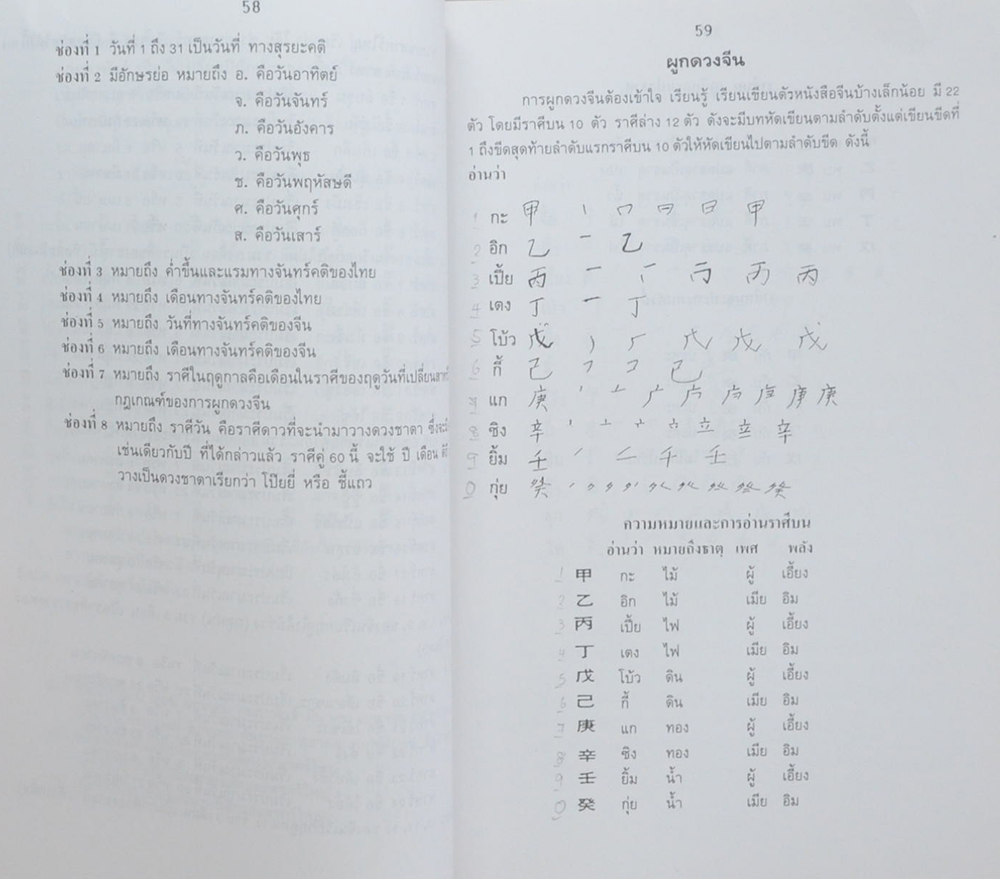 58
ช่องที่ 1 วันที่ 1 ถึง 31 เป็นวันที่ ทางสุรยะคติ
ช่องที่ 2 มีอักษรย่อ หมายถึง อ. คือวันอาทิตย์
จ. คือวันจันทร์
ภ. คือวันอังคาร
ว. คือวันพุธ
ช. คือวันพฤหัสษดี
ศ. คือวันศุกร์
ส. คือวันเสาร์
ช่องที่ 3 หมายถึง ค่ำขึ้นและแรมทางจันทร์คติของไทย
ช่องที่ 4 หมายถึง เดือนทางจันทร์คติของไทย
ช่องที่ 5 หมายถึง วันที่ทางจันทร์คติของจีน
ช่องที่ 6 หมายถึง เดือนทางจันทร์คติของจีน
ช่องที่ 7 หมายถึง ราศีในฤดูกาลคือเดือนในราศีของฤดูวันที่เปลี่ยน
กฎเกณฑ์ของการผูกดวงจีน
ช่องที่ 8 หมายถึง ราศีวัน คือราศีดาวที่จะนำมาวางดวงชาตา
เช่นเดียวกับปี ที่ได้กล่าวแล้ว ราศีคู่ 60 นี้ จะใช้ ปี เดือน
วางเป็นดวงชาตาเรียกว่า โป๊ยยี่ หรือ ซี้แถว
59
ผูกดวงจีน
การผูกดวงจีนต้องเข้าใจ เรียนรู้ เรียนเขียนตัวหนังสือจีนบ้างเล็กน้อย มี 22
ตัว โดยมีราศีบน 10 ตัว ราศีล่าง 12 ตัว ดังจะมีบทหัดเขียนตามลำดับตั้งแต่เขียนขีดที่
1 ถึงขีดสุดท้ายลำดับแรกราศีบน 10 ตัวให้หัดเขียนไปตามลำดับขีด ดังนี้
อ่านว่า
1 กะ 甲 甲
2 อิก 乙 乙
3 เปี้ย 丙 丙
4 เตง 丁 丁
5 โบ้ว 戊 戊 戊 戊
6 กี้ 己 己
7 แก 庚 庚 庚
8 ซิง 辛 辛
9 ยิ้ม 壬 壬
0 กุ่ย 癸 癸
ความหมายและการอ่านราศีบน
อ่านว่า หมายถึงธาตุ เพศ พลัง
1 甲 กะ ไม้ ผู้ เอี้ยง
2 乙 อิก ไม้ เมีย อิม
3 丙 เปี้ย ไฟ ผู้ เอี้ยง
4 丁 เตง ไฟ เมีย อิม
5 戊 โบ้ว ดิน ผู้ เอี้ยง
6 己 กี้ ดิน เมีย อิม
7 庚 แก ทอง ผู้ เอี้ยง
8 辛 ซิง ทอง เมีย อิม
9 壬 ยิ้ม น้ำ ผู้ เอี้ยง
0 癸 กุ่ย น้ำ เมีย อิม